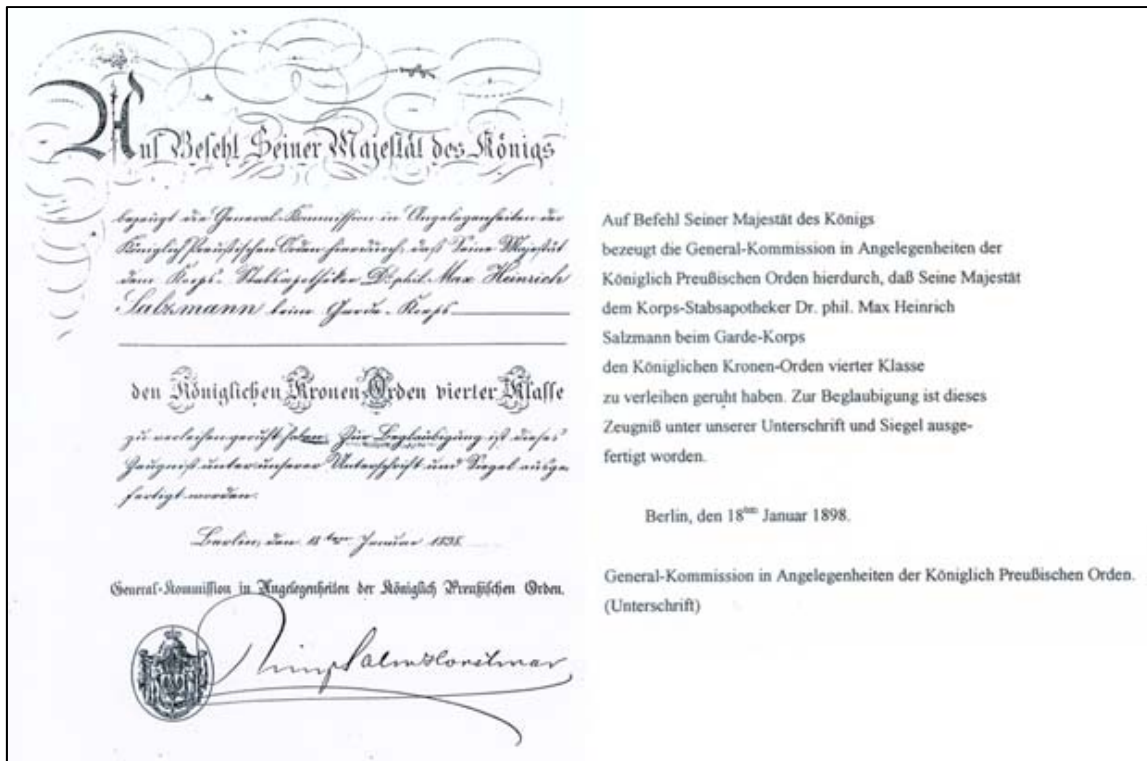 Auf Befehl Seiner Majestät des Königs
bezeugt die General-Kommission in Angelegenheiten der
Königlich Preußischen Orden hierdurch, daß Seine Majestät
dem Korps-Stabsapotheker Dr. phil. Max Heinrich
Salzmann beim Garde-Korps
den Königlichen Kronen-Orden vierter Klasse
zu verleihen geruht haben. Zur Beglaubigung ist dieses
Zeugniß unter unserer Unterschrift und Siegel ausge-
fertigt worden.
Berlin, den 18ten Januar 1898.
General-Kommission in Angelegenheiten der Königlich Preußischen Orden.
Auf Befehl Seiner Majestät des Königs
bezeugt die General-Kommission in Angelegenheiten der
Königlich Preußischen Orden hierdurch, daß Seine Majestät
dem Korps-Stabsapotheker Dr. phil. Max Heinrich
Salzmann beim Garde-Korps
den Königlichen Kronen-Orden vierter Klasse
zu verleihen geruht haben. Zur Beglaubigung ist dieses
Zeugniß unter unserer Unterschrift und Siegel ausge-
fertigt worden.
Berlin, den 18ten Januar 1898.
General-Kommission in Angelegenheiten der Königlich Preußischen Orden.
(Unterschrift)